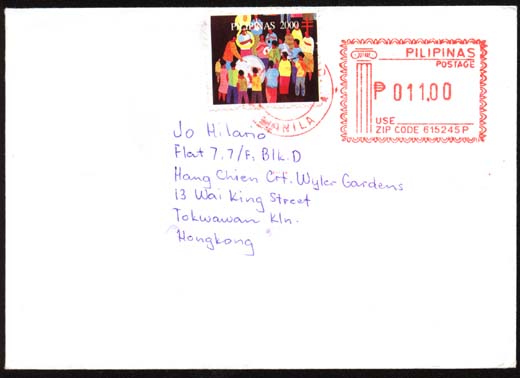 PILIPINAS 2000
PILIPINAS
POSTAGE
₱ 011.00
USE
ZIP CODE 615245P
MANILA
Jo Hilario
Flat 7, 7/F, Blk. D
Hang Chien Crt. Wyler Gardens
13 Wai King Street
Tokwawan Kln.
Hongkong